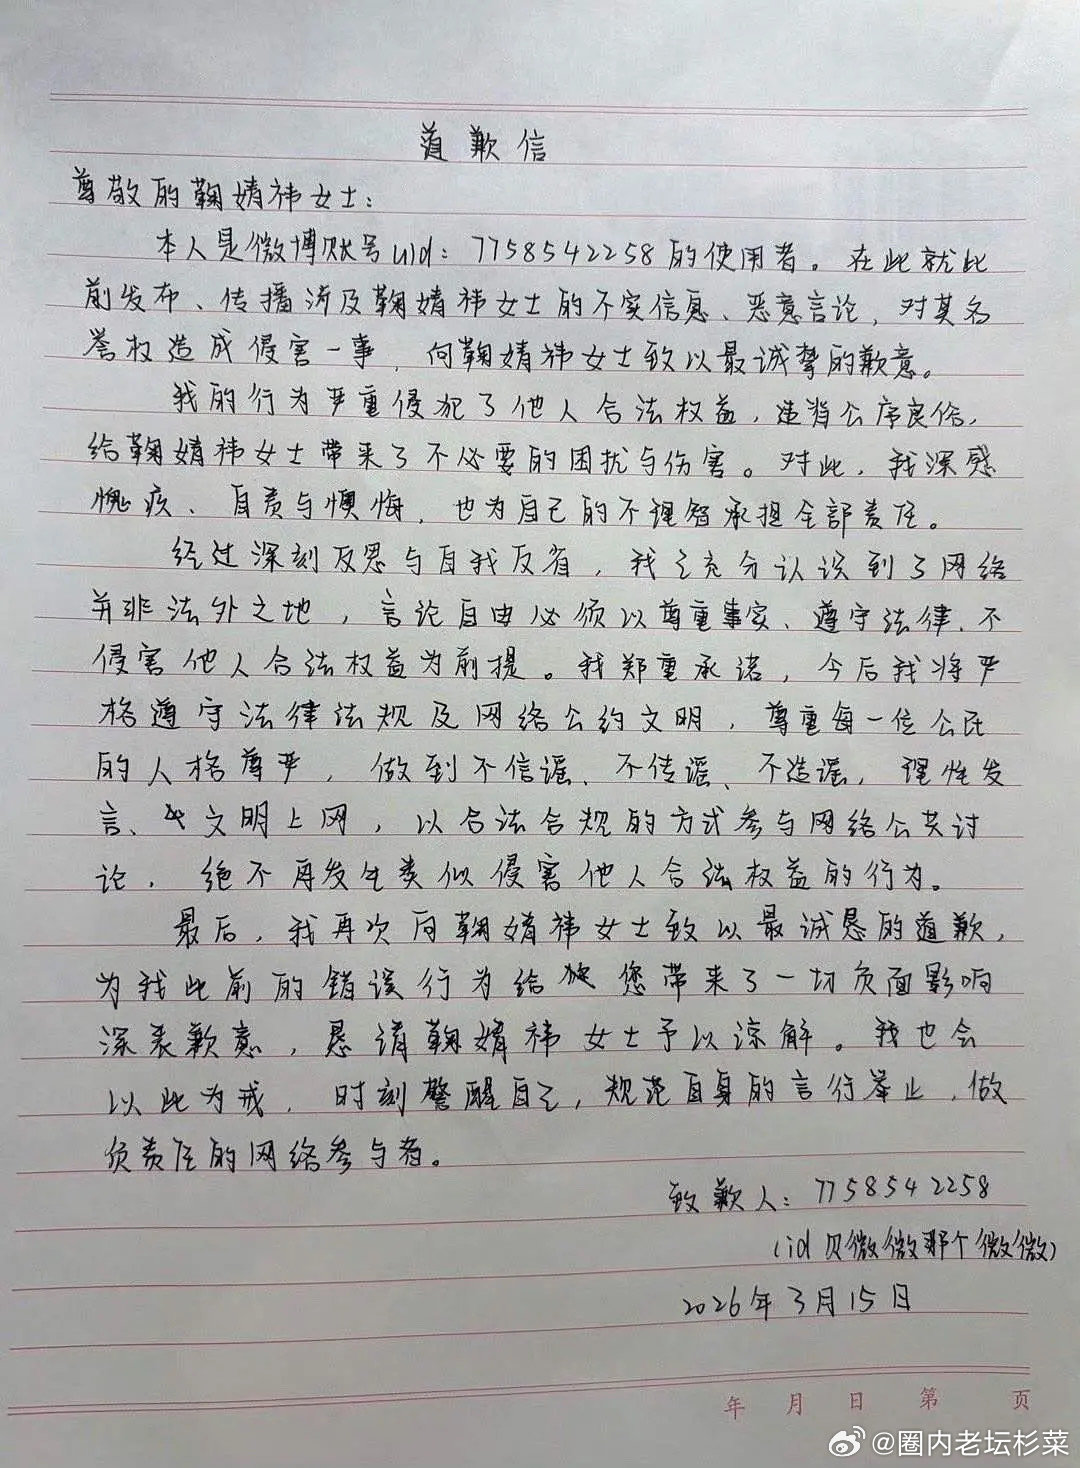 道歉信
尊敬的鞠婧祎女士：
本人是微博账号uid：7758542258的使用者。在此就此
前发布、传播涉及鞠婧祎女士的不实信息、恶意言论，对其名
誉权造成侵害一事，向鞠婧祎女士致以最诚挚的歉意。
我的行为严重侵犯了他人合法权益，违背公序良俗，
给鞠婧祎女士带来了不必要的困扰与伤害。对此，我深感
愧疚、自责与懊悔，也为自己的不理智承担全部责任。
经过深刻反思与自我反省，我已充分认识到了网络
并非法外之地，言论自由必须以尊重事实、遵守法律、不
侵害他人合法权益为前提。我郑重承诺，今后我将严
格遵守法律法规及网络公约文明，尊重每一位公民
的人格尊严，做到不信谣、不传谣、不造谣，理性发
言、文明上网，以合法合规的方式参与网络公共讨
论，绝不再发生类似侵害他人合法权益的行为。
最后，我再次向鞠婧祎女士致以最诚恳的道歉，
为我此前的错误行为给您带来了一切负面影响
深表歉意，恳请鞠婧祎女士予以谅解。我也会
以此为戒，时刻警醒自己，规范自身的言行举止，做
负责任的网络参与者。
致歉人：7758542258
（id贝微微那个微微）
2026年3月15日
年 月 日 第 页
@圈内老坛杉菜